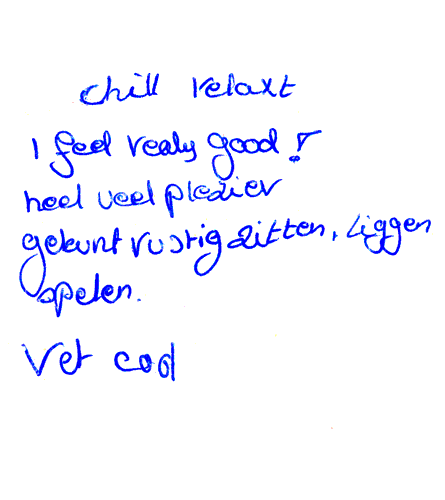 chill relaxt
I feel realy good!
heel veel plezier
gekunt rustig zitten, liggen
spelen.
Vet cool